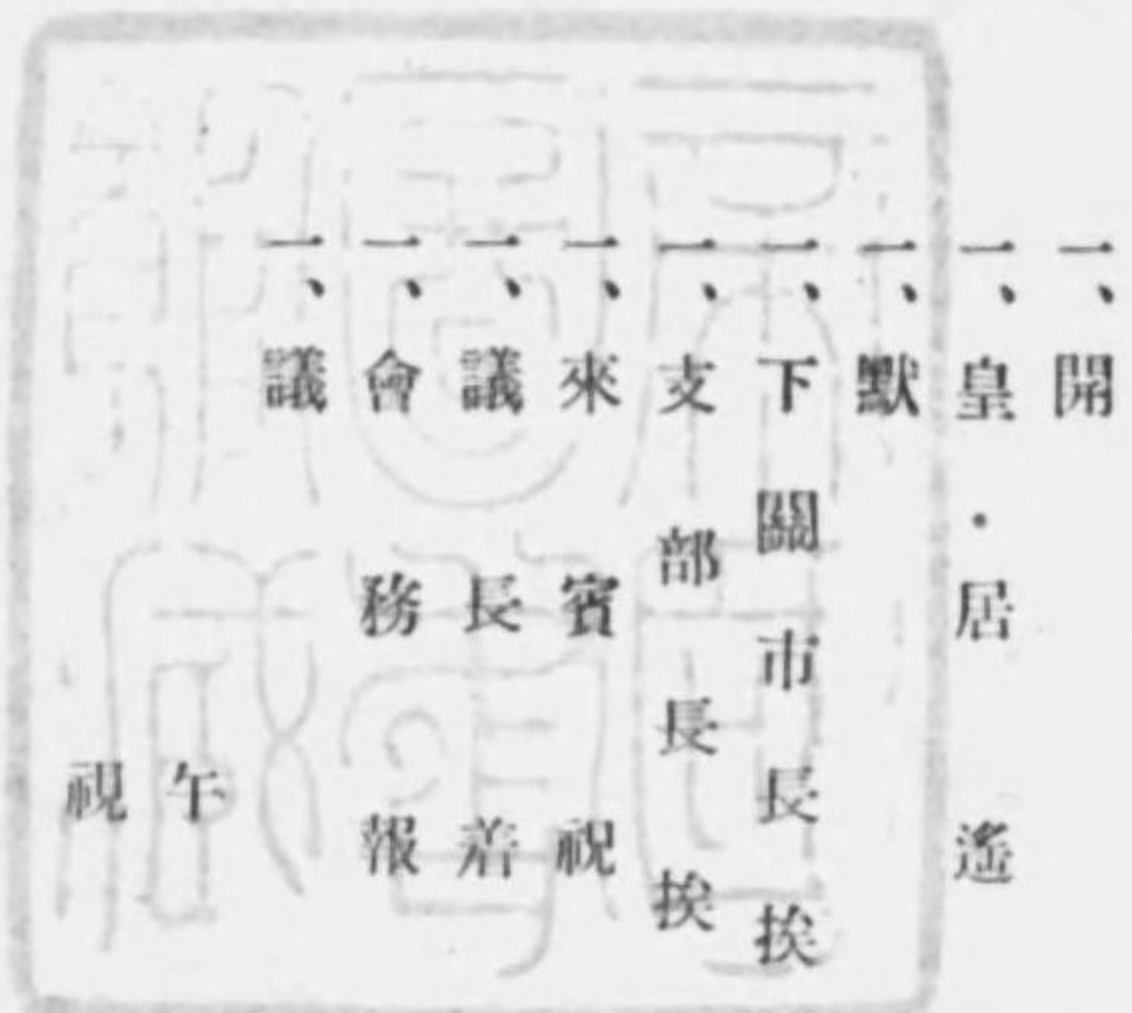 一、開
一、皇・居遙
一、默
一、下關市長挨
一、支部長挨
一、來賓祝
一、議長着
一、會務報
一、議
午
視